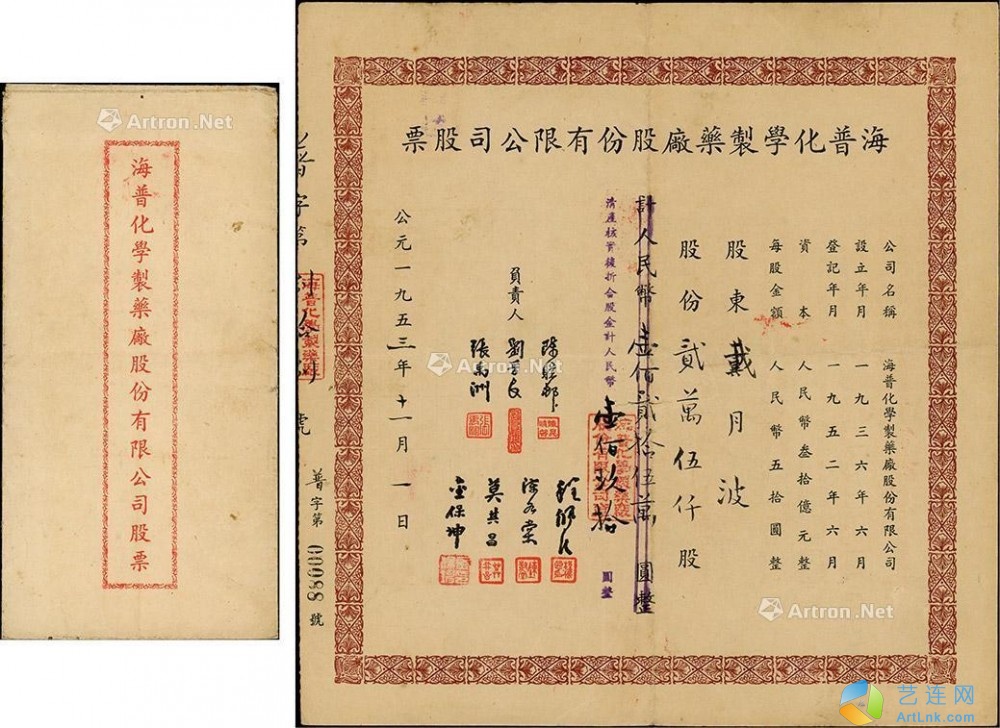 海普化學製藥廠股份有限公司股票
海普化學製藥廠股份有限公司股票
公司名稱 海普化學製藥廠股份有限公司
設立年月 一九三六年六月
登記年月 一九五二年六月
資本 人民幣叁拾億元整
每股金額 人民幣五拾圓整
股東 戴月波
股份 貳萬伍仟 股
計人民幣 壹佰貳拾伍萬 圓整
清產核實後折合股金計人民幣 壹佰玖拾 圓整
負責人
張禹洲
莫其昌
金保坤
公元一九五三年十一月一日
普字第
號
海普化學製藥廠
普字第 00088 號
Artron.Net
Artron.Net
Artron.Net
艺连网
ArtLnk.com